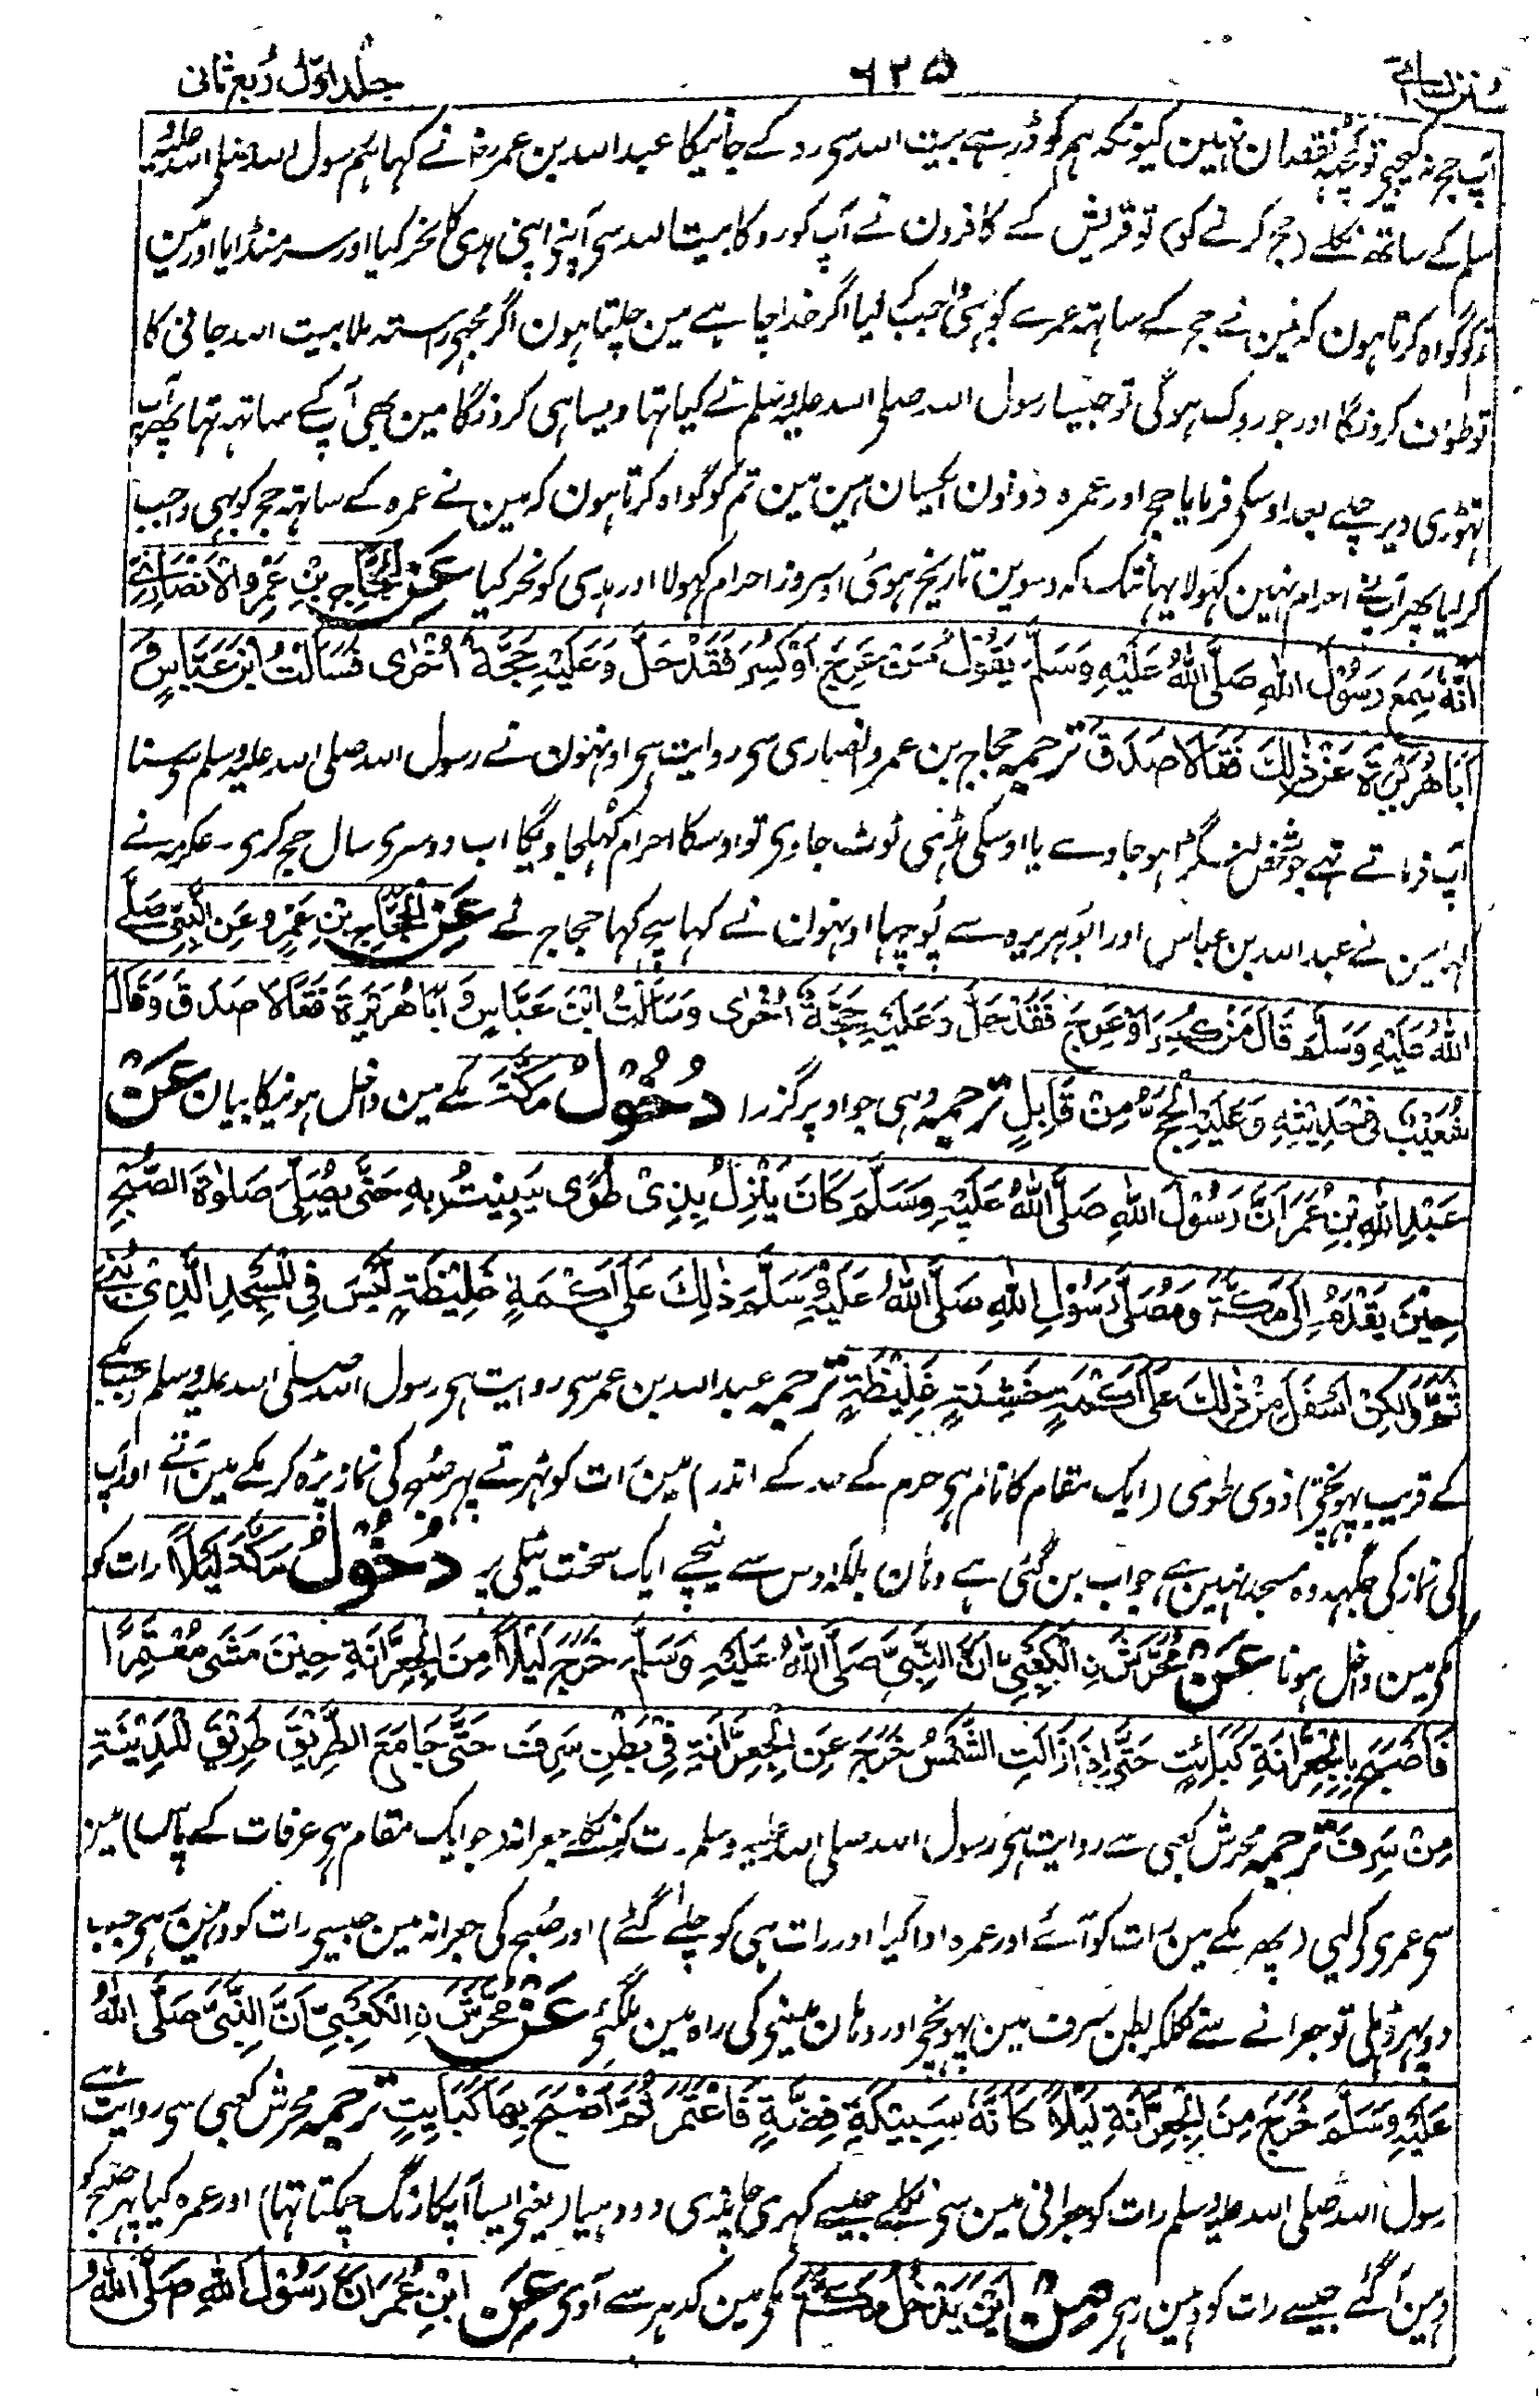 سنن نسائی ٦٢٥ جلد اول ربع ثانی
آپ حج نہ کیجیے تو کچھ نقصان نہین کیونکہ ہم کو ڈر ہے بیت اللہ سے روکے جانیکا عبد اللہ بن عمر نے کہا ہم رسول اللہ صلی اللہ علیہ
سلم کے ساتھ نکلے (حج کرنے کو) تو قریش کے کافرون نے آپ کو روکا بیت اللہ سے آپنے اپنی ہدی کا نحر کیا اور سر منڈایا اور مین
تمکو گواہ کرتا ہون کہ مین نے حج کے ساتھ عمرے کو بہی واجب کیا اگر خدا چاہے مین چلتا ہون اگر مجہے رستہ ملا بیت اللہ جانی کا
تو طواف کرونگا اور جو روک ہو گی تو جیسا رسول اللہ صلی اللہ علیہ وسلم نے کیا تہا ویسا ہی کرونگا مین بھی آپ کے ساتہہ تہا پھر آپ
تہوڑی دیر چلے بعد اوسکے فرمایا حج اور عمرہ دونون یکسان ہین مین تم کو گواہ کرتا ہون کہ مین نے عمرہ کے ساتہہ حج کو بہی واجب
کر لیا پھر آپنے احرام نہین کہولا یہانتک کہ دسوین تاریخ ہوئی اوسروز احرام کہولا اور ہدی کو نحر کیا عَنِ الْحَجَّاجِ بْنِ عَمْرٍو الْاَنْصَارِیِّ
اَنَّهٗ سَمِعَ رَسُوْلَ اللّٰهِ صَلَّی اللّٰهُ عَلَیْهِ وَسَلَّمَ یَقُوْلُ مَنْ عَرِجَ اَوْ کُسِرَ فَقَدْ حَلَّ وَعَلَیْهِ حَجَّةٌ اُخْرٰی فَسَاَلْتُ ابْنَ عَبَّاسٍ وَّ
اَبَا هُرَیْرَةَ عَنْ ذٰلِكَ فَقَالَا صَدَقَ ترجمہ حجاج بن عمرو انصاری سے روایت ہے اونہون نے رسول اللہ صلی اللہ علیہ وسلم سے سنا
آپ فرماتے تہے جو شخص لنگڑا ہو جاوے یا اوسکی ہڈی ٹوٹ جاوی تو اوسکا احرام کہلجاویگا اب دوسری سال حج کری۔ عکرمہ نے
کہا مین نے عبد اللہ بن عباس اور ابو ہریرہ سے پوچہا اونہون نے کہا سچ کہا حجاج نے عَنِ الْحَجَّاجِ بْنِ عَمْرٍو عَنِ النَّبِیِّ صَلَّی
اللّٰهُ عَلَیْهِ وَسَلَّمَ قَالَ مَنْ کُسِرَ اَوْ عَرِجَ فَقَدْ حَلَّ وَعَلَیْهِ حَجَّةٌ اُخْرٰی وَسَاَلْتُ ابْنَ عَبَّاسٍ وَّ اَبَا هُرَیْرَةَ فَقَالَا صَدَقَ وَقَالَ
شُعَیْبٌ فِیْ حَدِیْثِهٖ وَعَلَیْهِ الْحَجُّ مِنْ قَابِلٍ ترجمہ وہی جو اوپر گزرا دُخُوْلُ مَکَّةَ مکے مین داخل ہونیکا بیان عَنْ
عَبْدِ اللّٰهِ بْنِ عُمَرَ اَنَّ رَسُوْلَ اللّٰهِ صَلَّی اللّٰهُ عَلَیْهِ وَسَلَّمَ کَانَ یَنْزِلُ بِذِیْ طُوًی یَبِیْتُ بِهٖ حَتّٰی یُصَلِّیَ صَلٰوةَ الصُّبْحِ
حِیْنَ یَقْدَمُ اِلٰی مَکَّةَ وَمُصَلّٰی رَسُوْلِ اللّٰهِ صَلَّی اللّٰهُ عَلَیْهِ وَسَلَّمَ ذٰلِكَ عَلٰی اَکَمَةٍ غَلِیْظَةٍ لَیْسَ فِی الْمَسْجِدِ الَّذِیْ بُنِیَ
ثَمَّ وَلٰکِنْ اَسْفَلَ مِنْ ذٰلِكَ عَلٰی اَکَمَةٍ خَشِنَةٍ غَلِیْظَةٍ ترجمہ عبد اللہ بن عمر سے روایت ہے رسول اللہ صلی اللہ علیہ وسلم (جب مکے
کے قریب پہونچتے) ذوی طوی (ایک مقام کا نام ہے حرم کے حد کے اندر) مین رات کو ٹہرتے پہر صبح کی نماز پڑہ کر مکے مین آتے اور آپ
کی نماز کی جگہہ وہ مسجد نہین ہے جو اب بن گئی ہے وہان بلکہ اوس سے نیچے ایک سخت ٹیکی پر دُخُوْلُ مَکَّةَ لَیْلًا رات کو
مکے مین داخل ہونا عَنْ مُحَرِّشٍ الْکَعْبِیِّ اَنَّ النَّبِیَّ صَلَّی اللّٰهُ عَلَیْهِ وَسَلَّمَ خَرَجَ لَیْلًا مِنَ الْجِعِرَّانَةِ حِیْنَ مَشٰی مُعْتَمِرًا
فَاَصْبَحَ بِالْجِعِرَّانَةِ کَبَائِتٍ حَتّٰی اِذَا زَالَتِ الشَّمْسُ خَرَجَ عَنِ الْجِعِرَّانَةِ فِیْ بَطْنِ سَرِفَ حَتّٰی جَامَعَ الطَّرِیْقَ طَرِیْقَ الْمَدِیْنَةِ
مِنْ سَرِفَ ترجمہ محرش کعبی سے روایت ہے رسول اللہ صلی اللہ علیہ وسلم رات کو نکلے جعرانہ (جو ایک مقام ہے عرفات کے پاس) مین
سے عمری کو لیے (پھر مکے مین رات کو آئے اور عمرہ ادا کیا اور رات ہی کو چلے گئے) اور صبح کی جعرانہ مین جیسے رات کو وہین رہے جب
دوپہر ڈہلی تو جعرانے سے نکلکر بطن سرف مین پہونچے اور وہان مدینے کی راہ مین ملگئے عَنْ مُحَرِّشٍ الْکَعْبِیِّ اَنَّ النَّبِیَّ صَلَّی اللّٰهُ
عَلَیْهِ وَسَلَّمَ خَرَجَ مِنَ الْجِعِرَّانَةِ لَیْلًا کَاَنَّهٗ سَبِیْکَةُ فِضَّةٍ فَاعْتَمَرَ ثُمَّ اَصْبَحَ بِهَا کَبَایِتٍ ترجمہ محرش کعبی سے روایت ہے
رسول اللہ صلی اللہ علیہ وسلم رات کو جعرانی مین سے نکلے جیسے کہری چاندی دودہیا (یعنی ایسا آپکا رنگ چمکتا تہا) اور عمرہ کیا پہر صبح کو
وہین آگئے جیسے رات کو وہین رہے مِنْ اَیْنَ یَدْخُلُ مَکَّةَ مکے مین کدہر سے آوی عَنِ ابْنِ عُمَرَ اَنَّ رَسُوْلَ اللّٰهِ صَلَّی اللّٰهُ